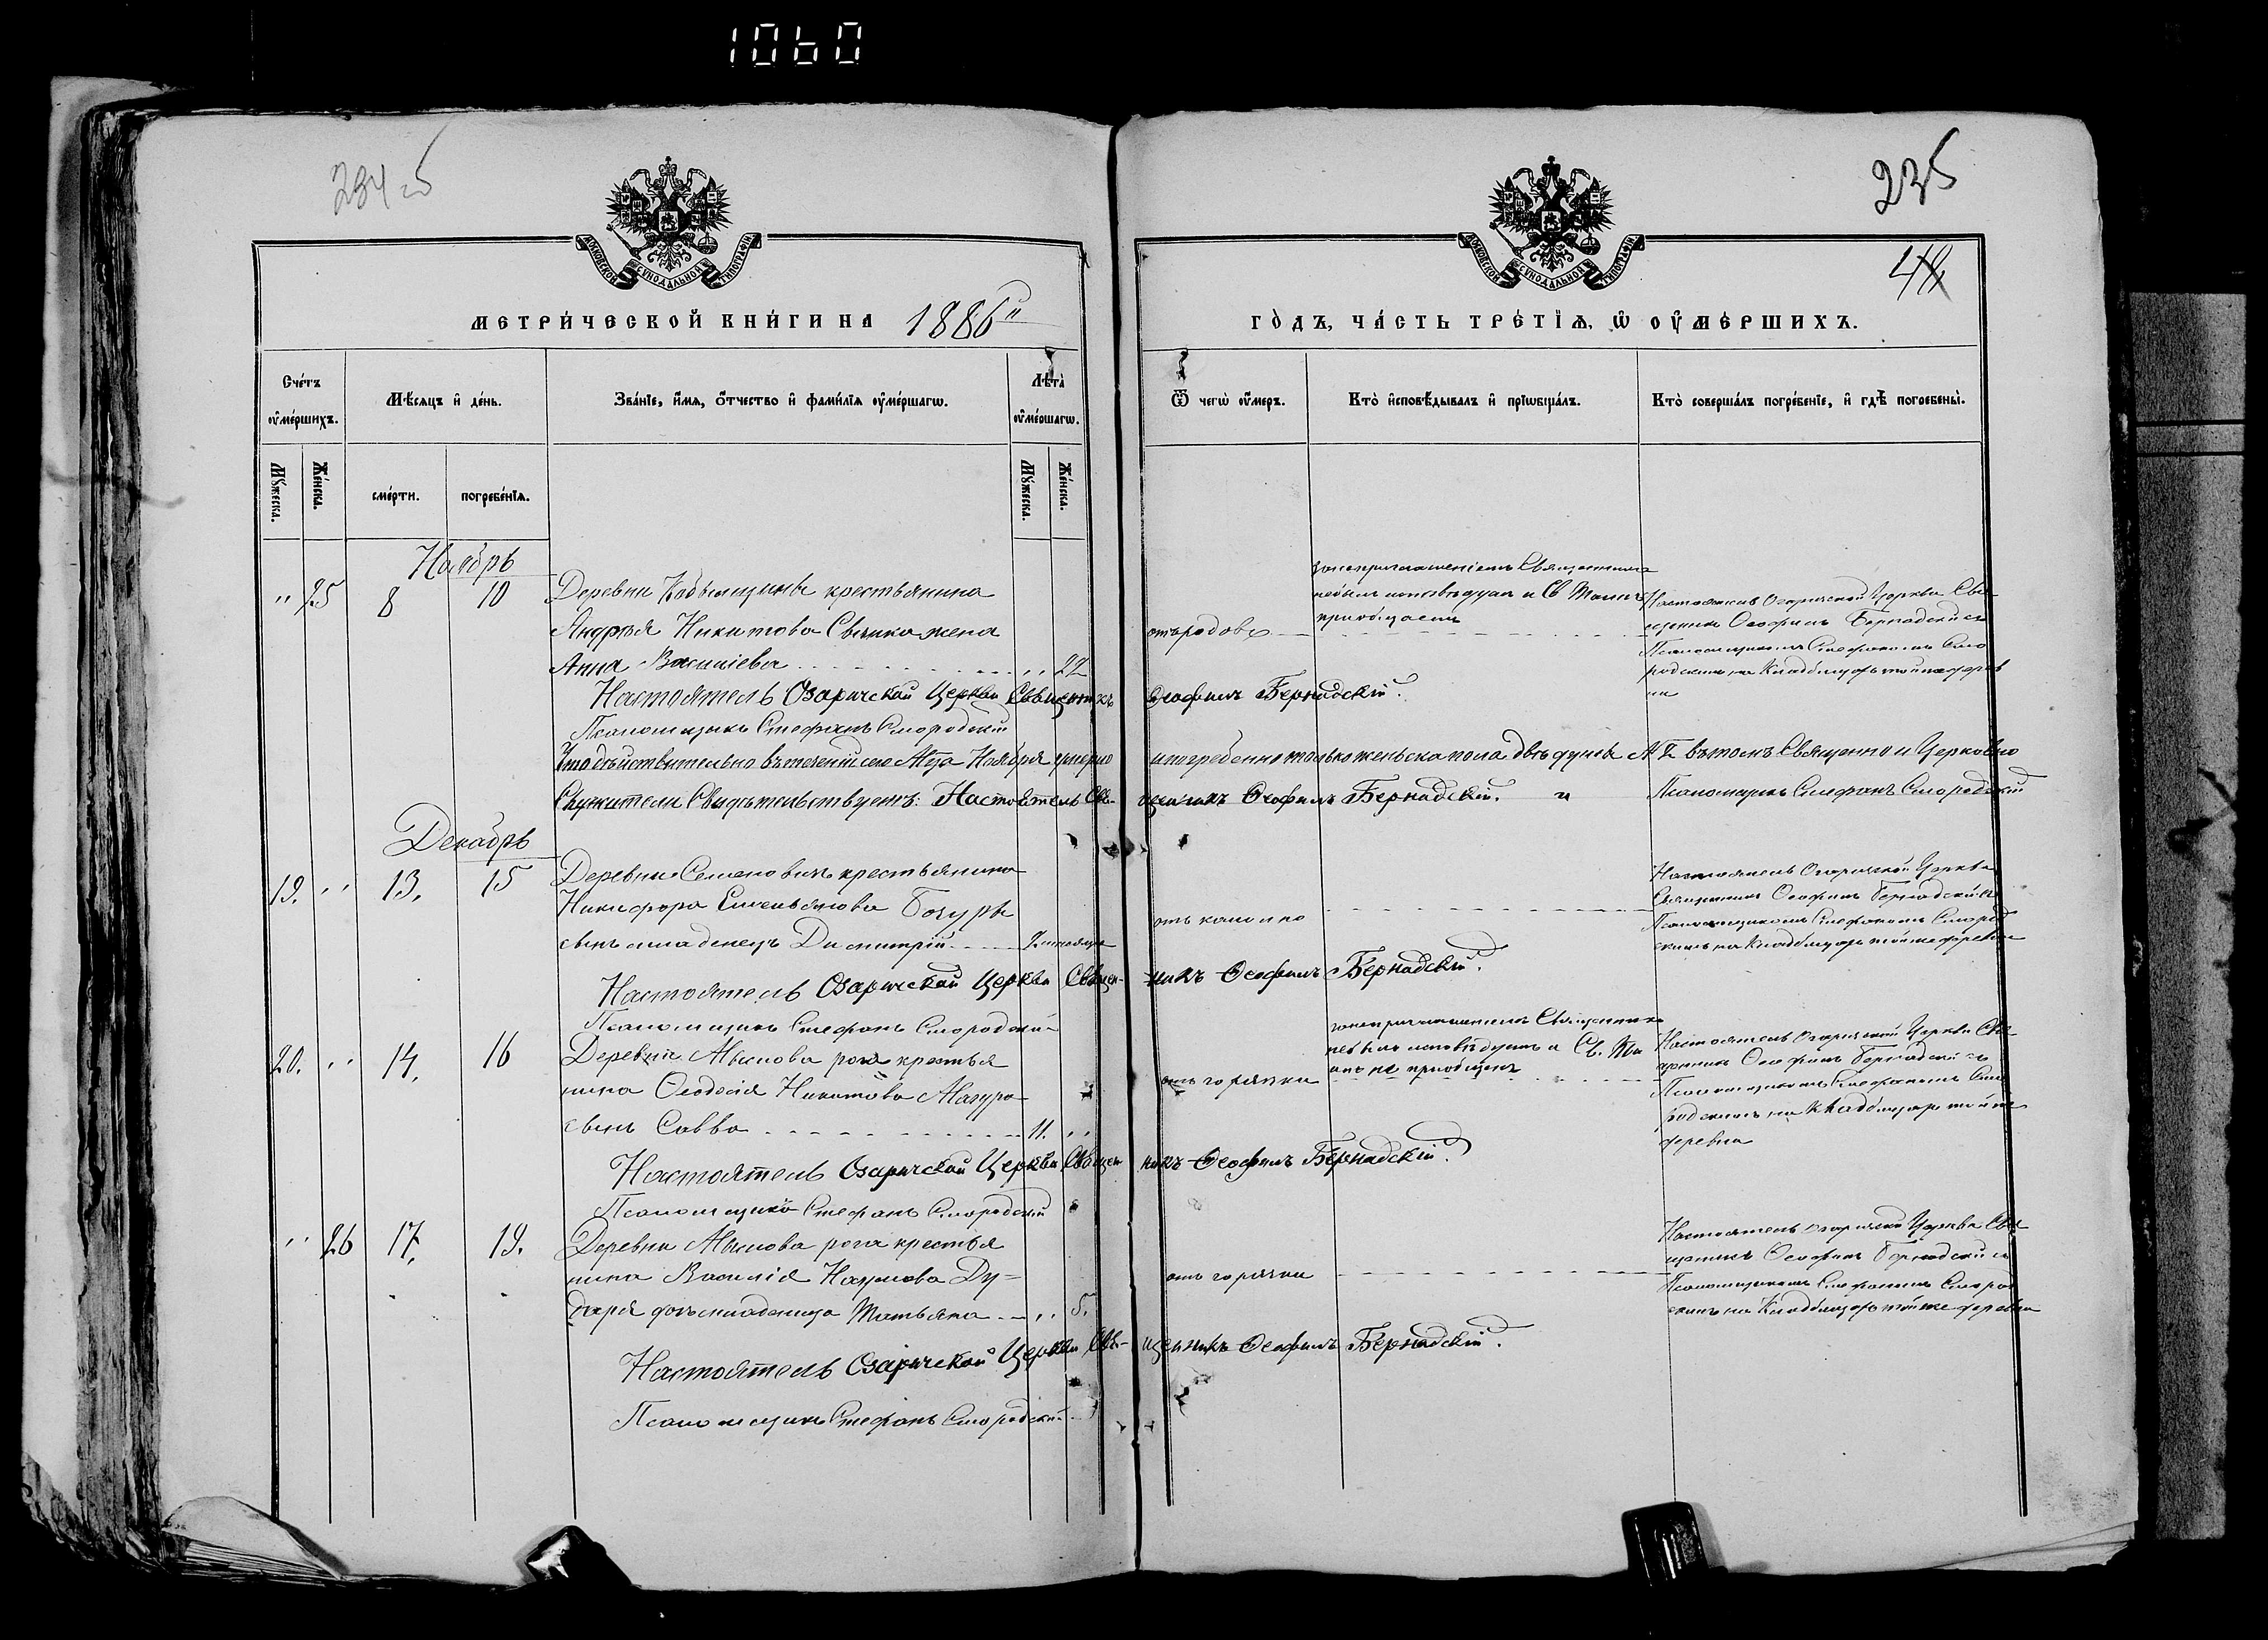 1060
234 об
235
48
МОСКОВСКОЙ СѴНОДАЛЬНОЙ ТИПОГРАФІИ
МОСКОВСКОЙ СѴНОДАЛЬНОЙ ТИПОГРАФІИ
МЕТРИ́ЧЕСКОЙ КНИ́ГИ НА 1886й
ГО́ДЪ, ЧА́СТЬ ТРЕ́ТІѦ, Ѡ ОУ҆МЕ́РШИХЪ.
Сче́тъ оу҆ме́ршихъ.
Мѣ́сяцъ и҆ де́нь.
Зва́нїе, и҆́мѧ, ѻ҆́тчество и҆ фами́лїѧ оу҆ме́ршагѡ.
Лѣта̀ оу҆ме́ршагѡ.
Ѿ чегѡ̀ оу҆́меръ.
Кто̀ и҆сповѣ́дывалъ и҆ прїѡбща́лъ.
Кто̀ соверша́лъ погребе́нїе, и҆ гдѣ̀ погребены̀.
Мꙋ́жеска.
Же́нска.
сме́рти.
погребе́нїѧ.
Мꙋ́жеска.
Же́нска.
Ноябрь
" 25 8 10 Деревни крестьянина
Андрея Никитова жена
Анна Василіева 22
отъ родовъ
Священника
небыла исповѣдуана и Св Таинъ
Настоятель Озаричской Церкви Свя-
щенник Ѳеофилъ Бернадскій съ
Псаломщикомъ Стефаномъ Смо
родскимъ на Кладбищѣ той же дерев
ни
Настоятель Озаричской Церкви Священникъ Ѳеофилъ Бернадскій.
Псаломщикъ Стефанъ Смородскій
Что дѣйствительно въ теченіи сего Мца Ноября умерло и погребенно только женьска пола двѣ душы № 2 въ томъ Священно и Церковно
Служители Свидѣтельствуемъ: Настоятель Священникъ Ѳеофилъ Бернадскій. и Псаломщикъ Стефанъ Смородскій
Декабрь
19. " 13. 15 Деревни Семеновичъ крестьянина
Никифора Емельянова Бочуры
сынъ младенецъ Димитрій
отъ
Настоятель Озаричской Церкви
Священник Ѳеофилъ Бернадскій съ
Псаломщикомъ Стефаномъ Смород
скимъ на Кладбищѣ той же деревни
Настоятель Озаричской Церкви Священникъ Ѳеофилъ Бернадскій.
Псаломщикъ Стефанъ Смородскій
20. " 14. 16 Деревни Мыслова рога крестья
нина Ѳеодосія Никитова Мазура
сынъ Савва 11. "
отъ горячки
Священника
небылъ исповѣдуанъ и Св. Та
инъ не приобщенъ
Настоятель Озаричской Церкви Свя-
щенник Ѳеофилъ Бернадскій съ
Псаломщикомъ Стефаномъ Смо
родскимъ на Кладбищѣ той же
деревни
Настоятель Озаричской Церкви Священникъ Ѳеофилъ Бернадскій.
Псаломщикъ Стефанъ Смородскій
" 26 17. 19. Деревни Мыслова рога крестья
нина Василія Наумова Ду=
даря дочь младеница Татьяна " 5.
отъ горячки
Настоятель Озаричской Церкви Свя
щенникъ Ѳеофилъ Бернадскій съ
Псаломщикомъ Стефаномъ Смород
скимъ на Кладбищѣ той же деревни
Настоятель Озаричской Церкви Священникъ Ѳеофилъ Бернадскій.
Псаломщикъ Стефанъ Смородскій